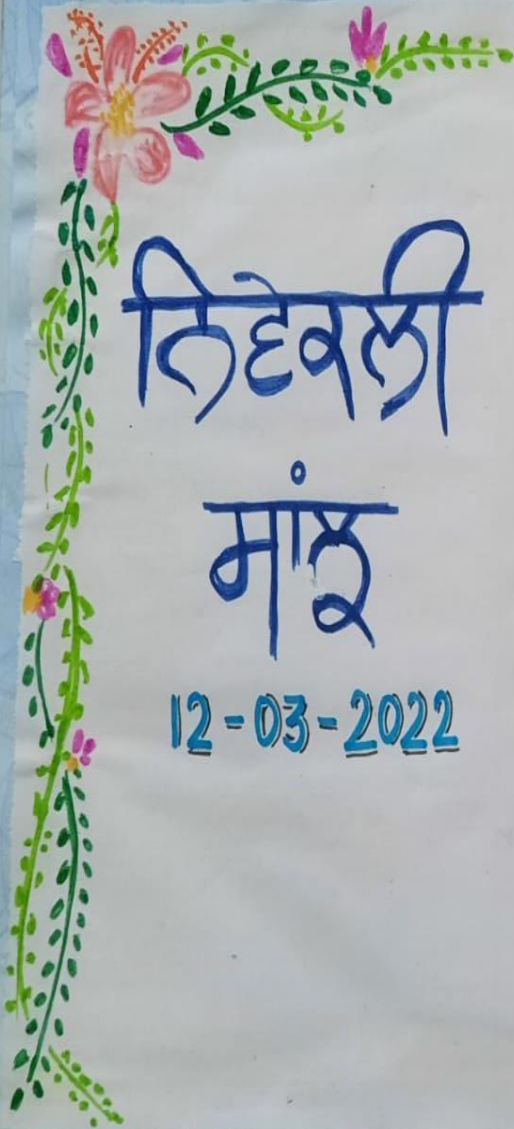 ਨਿਵੇਕਲੀ
ਸਾਂਝ
12-03-2022